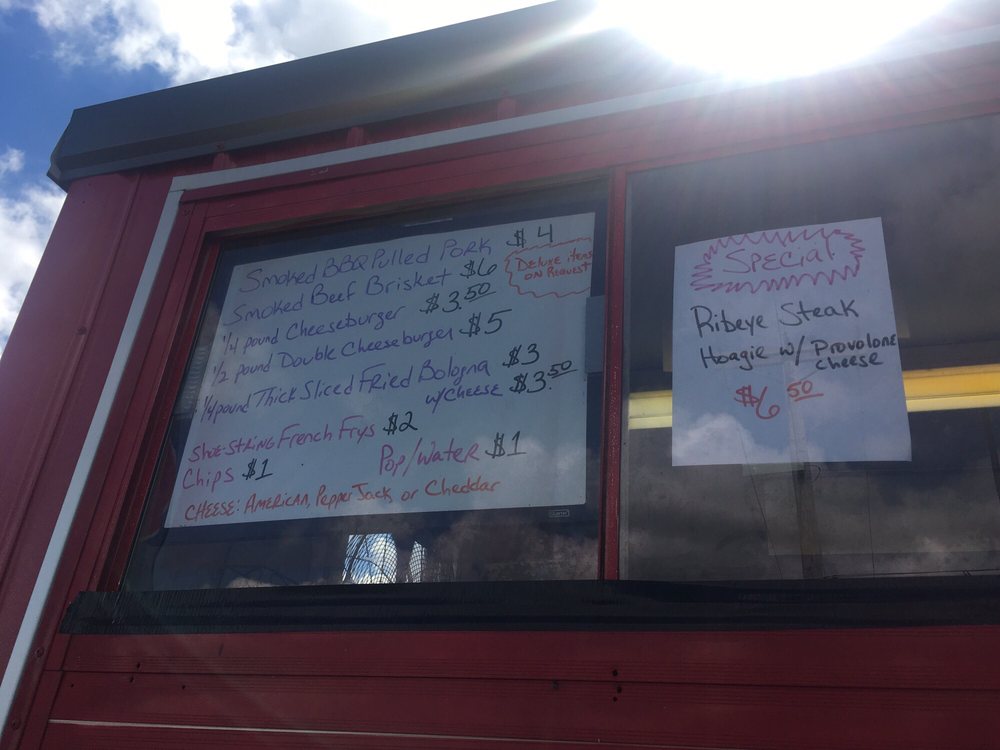 Smoked BBQ Pulled Pork $4
Smoked Beef Brisket $6
Deluxe items
on Request
1/4 pound Cheeseburger $3.50
1/2 pound Double Cheeseburger $5
1/4 pound Thick Sliced Fried Bologna $3
w/cheese $3.50
Shoe-string French Frys $2
Chips $1 Pop/Water $1
Cheese: American, Pepper Jack or Cheddar
Special
Ribeye Steak
Hoagie w/ Provolone
cheese
$6.50